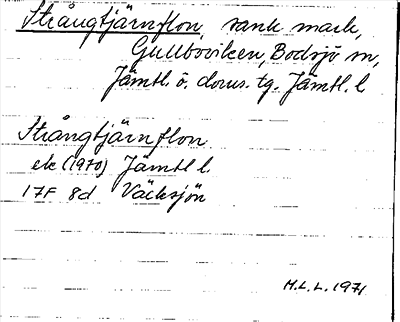 Strångtjärnflon, sank mark,
Gullboviken, Bodsjö sn,
Jämtl. ö. doms. tg. Jämtl. l
Strångtjärnflon
ek (1970) Jämtl l.
17F 8d Väcksjön
M.L.L. 1971